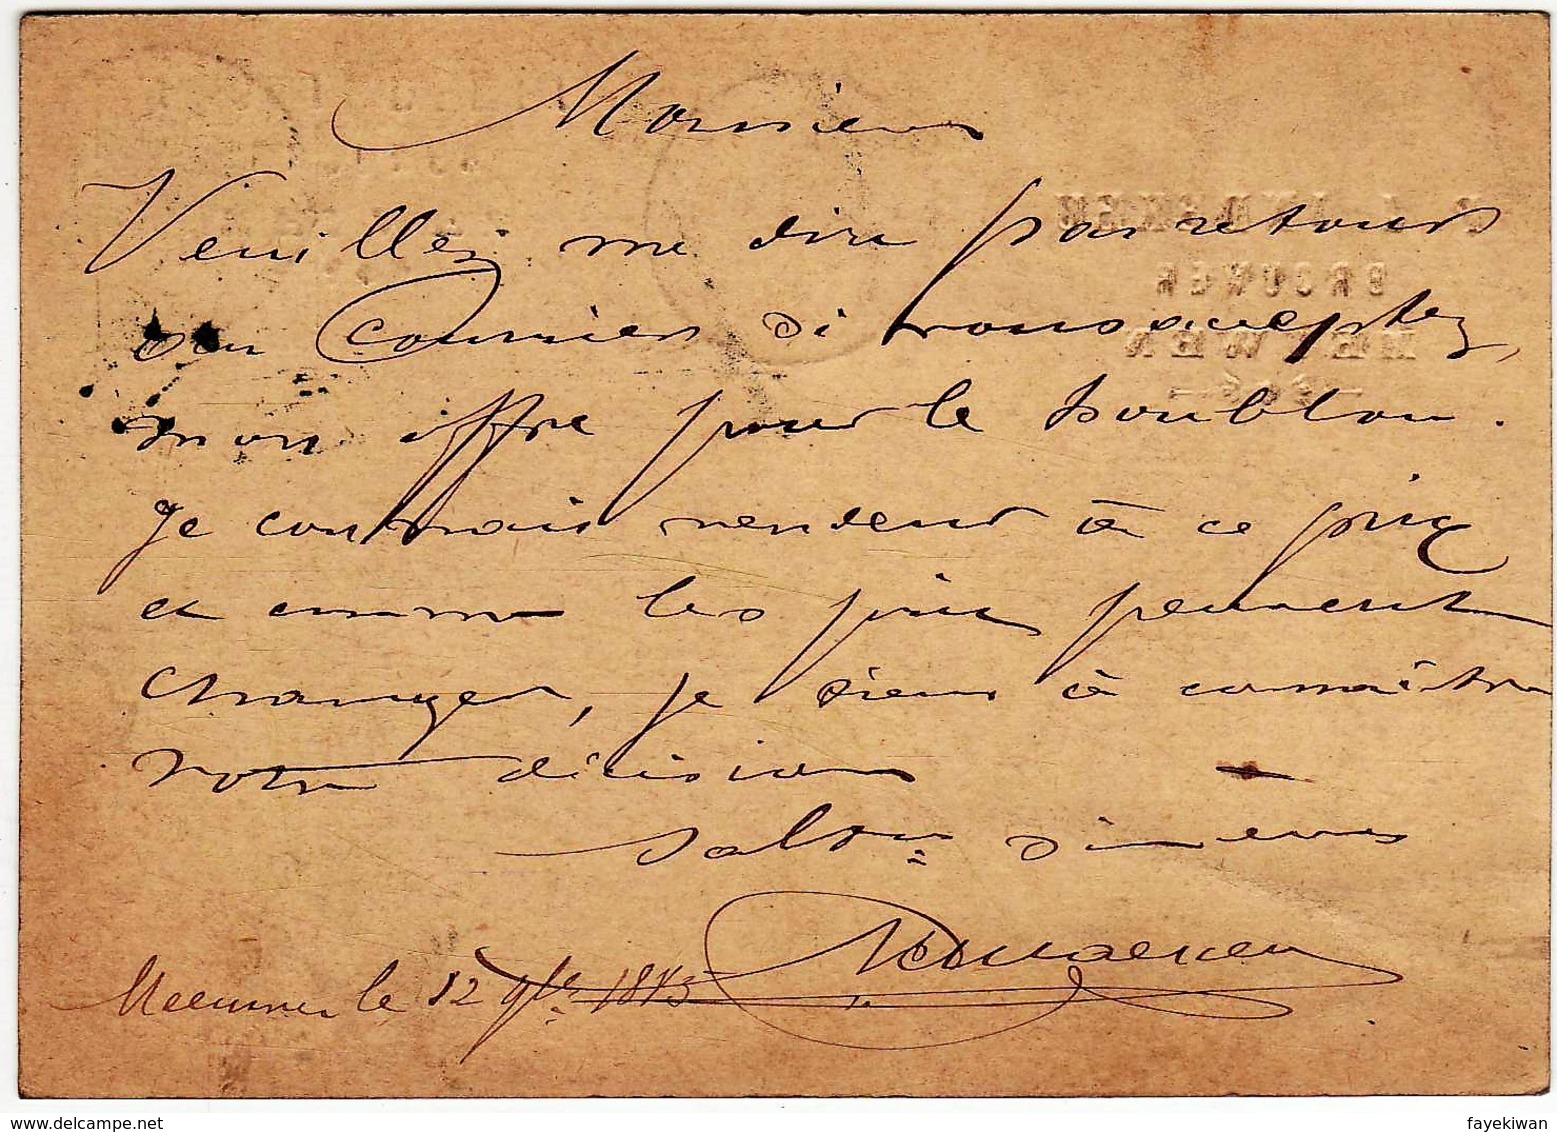 Monsieur
Veuillez me dire par retour
du Courrier si vous acceptez
mon offre pour le houblon.
Je connais vendeur à ce prix
et comme les prix peuvent
changer, je tiens à connaître
votre décision
Salut sincères
le 12 9bre 18
BROUWER
www.delcampe.net
fayekiwan